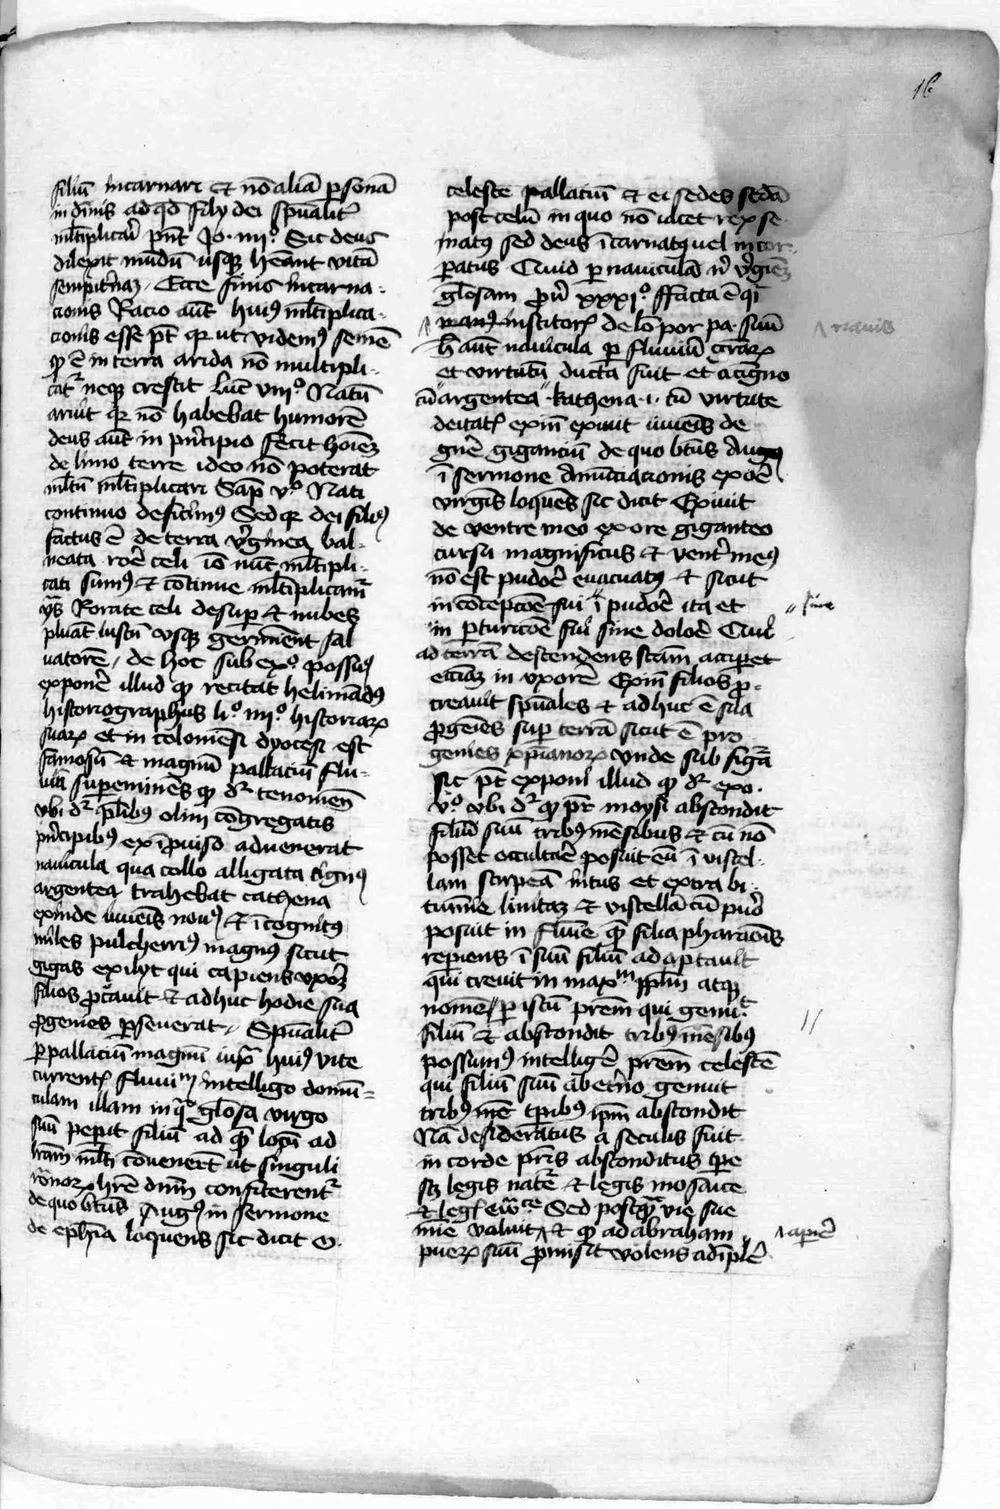 16
filiū incarnari et nō aliā psonā
in dīnis ad qd filij dei spūalitʼ
mltiplicari pn̄t Jo · iiijº Sic deus
dilexit mūdū usqꝫ heant vitā
sempitʼnaꝫ Ecce finis incarna-
cionis Racio aūt huiꝰ mltiplica-
cionis esse pt qr ut videmꝰ semē
qd ē in terra arida nō multipli-
catʳ neqꝫ crescit Luc viijº Natū
aruit qr nō habebat humorē
deus aūt in pncipio fecit hoiēꝫ
de limo terre ideo nō poterat
mltū mltiplicari Sap vº Nati
continuo desiimꝰ Sed qr dei filiꝰ
factus ē de terra vʼginea bal-
neata rore celi iō nūc mltipli-
cati sumꝰ et cōtinue mltiplicamʳ
ys Rorate celi desup et nubes
pluāt iustū vsqꝫ germinēt sal
uatorē de hoc sub exº possūꝰ
exponē illud qd recitat helimādꝰ
historiographus liº iiijº historiaꝝ
suaꝝ et in coloniēsi dyocesi est
famosū et magnū pallaciū flu-
uiū supeminēs qd dʳ
vbi dʳ plibus olim cōgregatis
pncipibꝰ ex īprouiso aduenerat
nauicula qua collo alligata cignꝰ
argentea trahebat cathena
exinde iuuēis nouꝰ et īcognitꝰ
miles pulcherriꝰ magnꝰ sicut
gigas exilyt qui capiens vxoꝝ
filios pcreauit et adhuc hodie sua
pgenies pseuerat Spūalitʼ
p pallaciū magnū iuxta huiꝰ vite
currentꝭ fluuiū intelligo domū-
culam illam in qa glosa virgo
suū pepit filiū ad quē locū ad
lram mlti conuenerūt ut singuli
dnm confiterentʳ
de quo btus Augꝰ in sermone
de ephia loquens sic dicit O
celeste pallaciū et ei sedes scdā
post celū in quo nō iacet rex se
natꝰ sed deus īcarnatꝰ uel incor
patus Quid p nauiculā nʼ vʼginēꝫ
glosam prouʼ xxxjº ffacta ē qi
institoris de lo por pa suū
h aūt nauicula p fluuiū graꝝ
et virtutū ducta fuit et a cigno
cū argentea kathena · i · cū virtute
deitatꝭ exin exiuit iuuēis de
gnē gigantiū de quo btus Augꝰ
ī sermone Annūciacionis ex ore
virgīs loquēs sic dicit Exiuit
de ventre meo ex ore giganteo
cursu magnificus et ventʼ meꝰ
nō est pudore euacuatꝰ et sicut
in cōcepcōe sui ī pudore ita et
in pturicōe sui sine dolore Qui
ad terrā descendens scām accipet
eccīaꝫ in vxorē Exin filios p-
creauit spūales et adhuc ē sua
pgenies sup terrā sicut ē pro
genies xpianoꝝ vnde sub figa
sic pt exponi illud qd dʳ exo
ijº vbi dʳ qd pr moysi abscondit
filiū suū tribꝰ mēsibus et cū nō
posset occultare posuit eū ī viscel-
lam scirpeā intus et extra bi-
tumīe linitaꝫ et viscellā cū puo
posuit in flūīe quē filia pharaonis
repiens ī suū filiū adaptauit
qui creuit in maxm pplm atqꝫ
nomē p istū prem qui genuit
filiū et abscondit tribꝰ mēsibus
possumꝰ intelligē prem celestē
qui filiū suū ab etʼno genuit
tribꝰ mē tpibus ipm abscondit
Na desideratus a seculis fuit
in corde pris absconditus tpe
scꝫ legis natē et legis mosaice
et legꝭ Sed postqa vie sue
mīe voluit et qd ad abraham
pueꝝ suū promisit volens adīplē
nauis
sine
apire